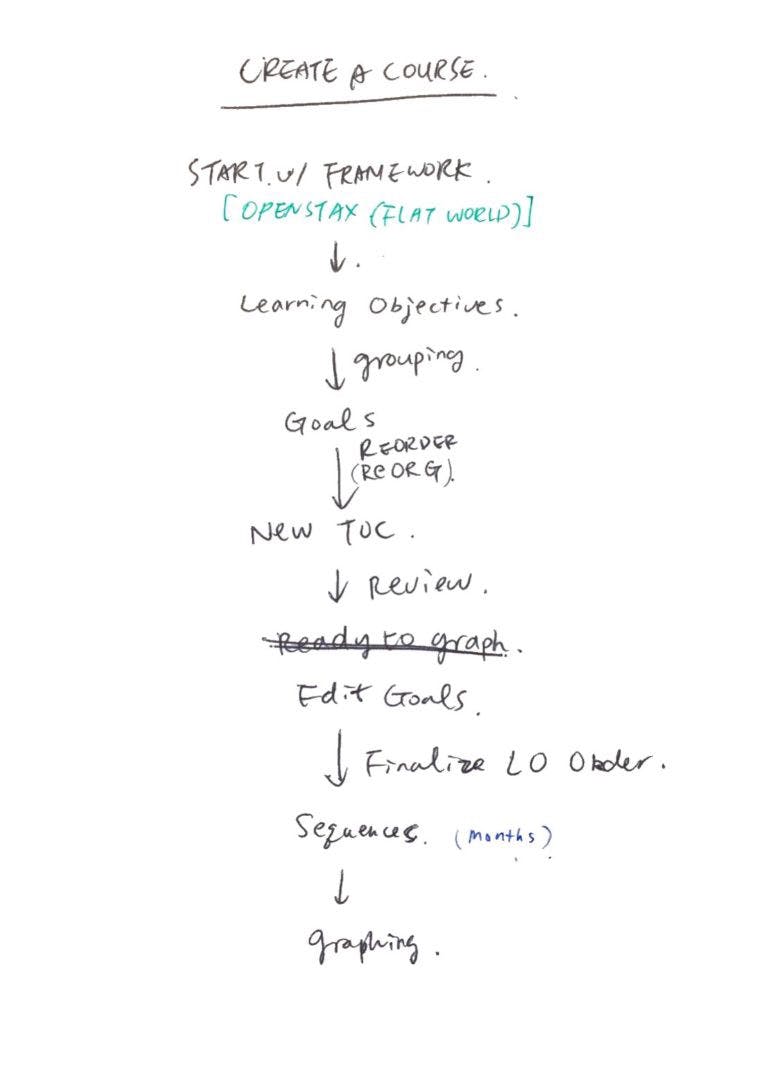 CREATE A COURSE.
START. w/ FRAMEWORK.
[OPENSTAX (FLAT WORLD)]
↓.
Learning Objectives.
↓ grouping.
Goals
↓ REORDER
(REORG).
New TOC.
↓ Review.
Ready to graph.
Edit Goals.
↓ Finalize LO Order.
Sequences. (months)
↓
graphing.